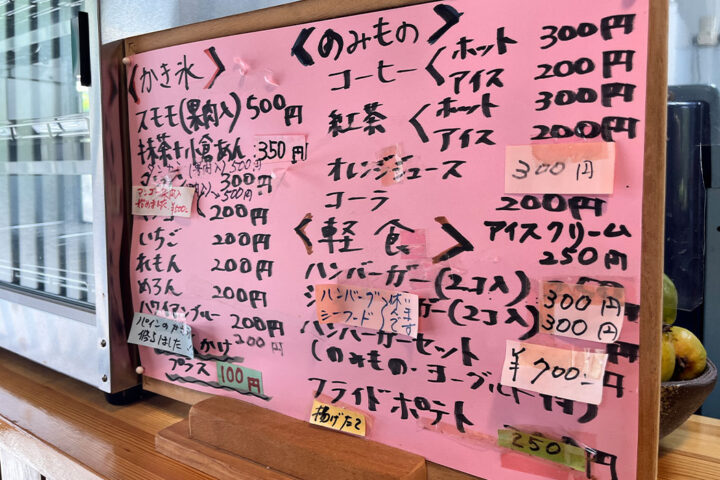 〈かき氷〉
スモモ(果肉入) 500円
抹茶+小倉あん 350円
300円
200円
いちご 200円
れもん 200円
めろん 200円
ハワイアンブルー 200円
かけ 200円
プラス 100円
〈のみもの〉
コーヒー〈ホット 300円
アイス 200円
紅茶〈ホット 300円
アイス 200円
オレンジジュース 300円
コーラ 200円
〈軽食〉
アイスクリーム
250円
ハンバーガー(2コ入) 300円
ガー(2コ入) 300円
ハンバーグ
シーフード
ハンバーガーセット ¥700-
(のみもの・ヨーグルト付)
フライドポテト 250円
揚げたて